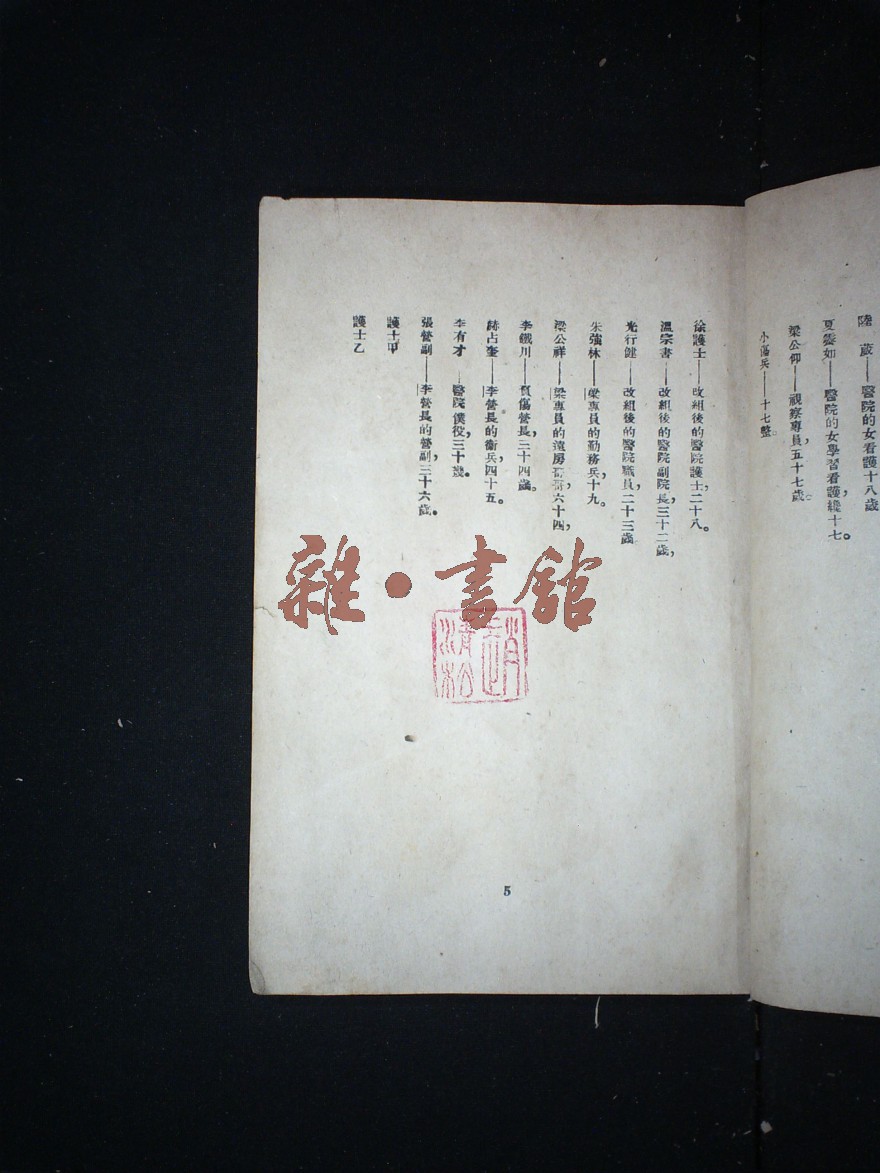 陸 葳——醫院的女看護十八歲
夏霁如——醫院的女學習看護,纔十七。
梁公仰——視察專員,五十七歲。
小傷兵——十七整。
徐護士——改組後的醫院護士,二十八。
溫宗書——改組後的醫院副院長,三十二歲,
光行健——改組後的醫院職員,二十三歲
朱強林——梁專員的勤務兵,十九。
梁公祥——梁專員的遠房哥哥,六十四,
李鐵川——負傷營長,三十四歲。
赫占奎——李營長的衛兵,四十五。
李有才——醫院僕役,三十幾。
張營副——李營長的營副,三十六歲。
護士甲
護士乙
雜·書館
5